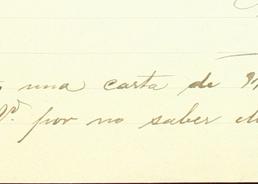 una carta de
Vd. por no saber